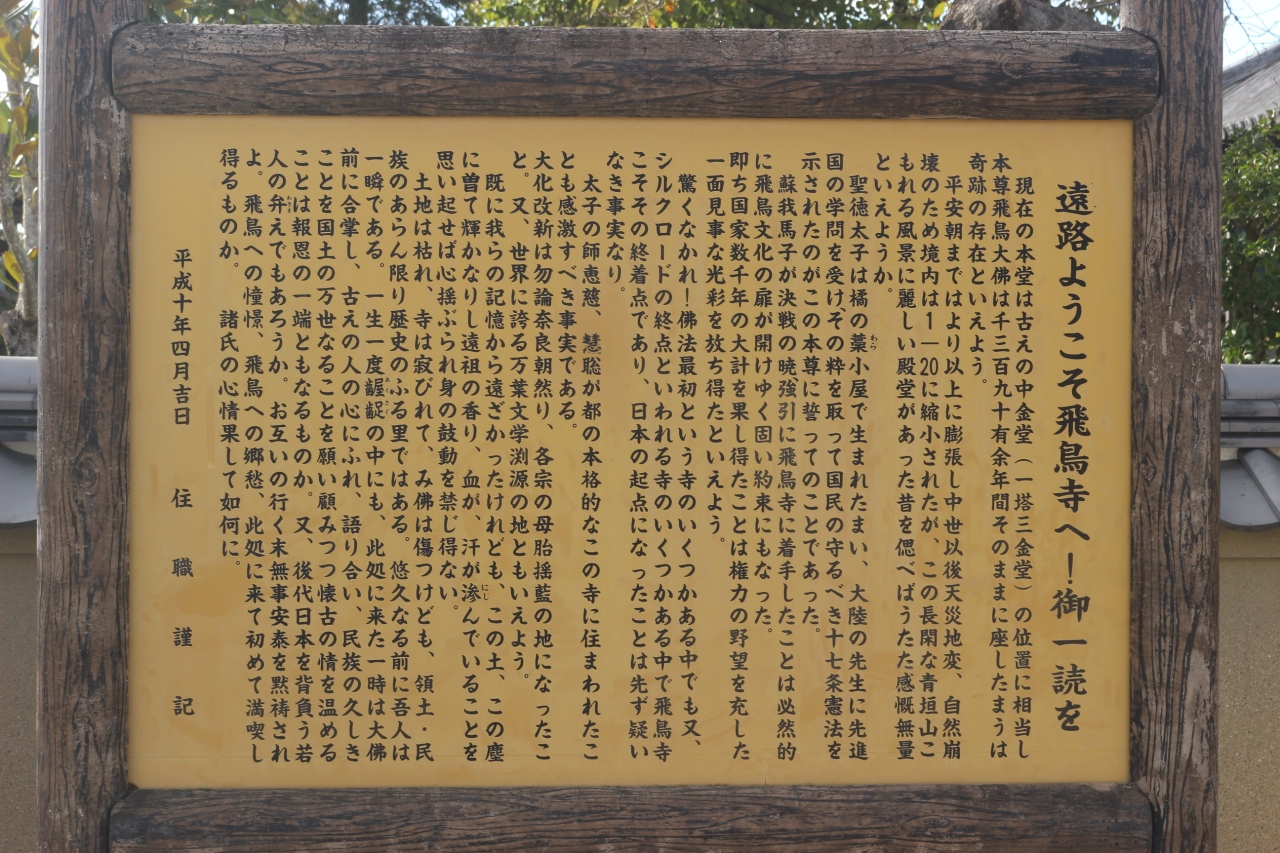 遠路ようこそ飛鳥寺へ！御一読を
現在の本堂は古えの中金堂（一塔三金堂）の位置に相当し
本尊飛鳥大佛は千三百九十有余年間そのままに座したまうは
奇跡の存在といえよう。
平安朝まではより以上に膨張し中世以後天災地変、自然崩
壊のため境内は1―20に縮小されたが、この長閑な青垣山こ
もれる風景に麗しい殿堂があった昔を偲べばうたた感慨無量
といえようか。
聖徳太子は橘の藁小屋で生まれたまい、大陸の先生に先進
わら
国の学問を受け、その粋を取って国民の守るべき十七条憲法を
示されたのがこの本尊に誓ってのことであった。
蘇我馬子が決戦の暁強引に飛鳥寺に着手したことは必然的
に飛鳥文化の扉が開けゆく固い約束にもなった。
即ち国家数千年の大計を果し得たことは権力の野望を充した
一面見事な光彩を放ち得たといえよう。
驚くなかれ！佛法最初という寺のいくつかある中でも又、
シルクロードの終点といわれる寺のいくつかある中で飛鳥寺
こそその終着点であり、日本の起点になったことは先ず疑い
なき事実なり。
太子の師恵慈、慧聡が都の本格的なこの寺に住まわれたこ
とも感激すべき事実である。
大化改新は勿論奈良朝然り、各宗の母胎揺藍の地になったこ
と。又、世界に誇る万葉文学渕源の地ともいえよう。
既に我らの記憶から遠ざかったけれども、この土、この塵
に曽て輝かなりし遠祖の香り、血が、汗が滲んでいることを
にじ
思い起せば心揺ぶられ身の鼓動を禁じ得ない。
土地は枯れ、寺は寂びれて、み佛は傷つけども、領土・民
族のあらん限り歴史のふる里ではある。悠久なる前に吾人は
一瞬である。一生一度齷齪の中にも、此処に来た一時は大佛
あくせく
前に合掌し、古えの人の心にふれ、語り合い、民族の久しき
ことを国土の万世なることを願い顧みつつ懐古の情を温める
ことは報恩の一端ともなるものか。又、後代日本を背負う若
人の弁えでもあろうか。お互いの行く末無事安泰を黙祷され
わきま
よ。飛鳥への憧憬、飛鳥への郷愁、此処に来て初めて満喫し
得るものか。　諸氏の心情果して如何に。
平成十年四月吉日　住職謹記